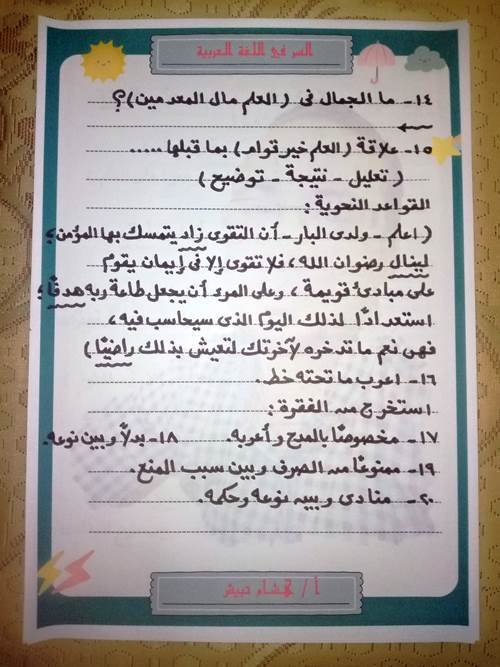 السر في اللغة العربية
١٤- ما الجمال فى (العلم مال المعدمين)؟
١٥- علاقة (العلم خير قوام) بما قبلها .....
( تعليل - نتيجة - توضيح )
القواعد النحوية :
( اعلم - ولدى البار - أن التقوى زاد يتمسك بها المؤمن؛
لينال رضوان الله، فلا تقوى إلا فى إيمان يقوم
على مبادئ قويمة، وعلى المرء أن يجعل طاعة ربه هدفًا؛
استعدادًا لذلك اليوم الذى سيحاسب فيه،
فهى نعم ما تدخره لآخرتك لتعيش بذلك راضيًا )
١٦- اعرب ما تحته خط.
استخرج من الفقرة :
١٧- مخصوصًا بالمدح وأعربه. ١٨- بدلاً وبين نوعه.
١٩- ممنوعًا من الصرف وبين سبب المنع.
٢٠- منادى وبين نوعه وحكمه.
أ /